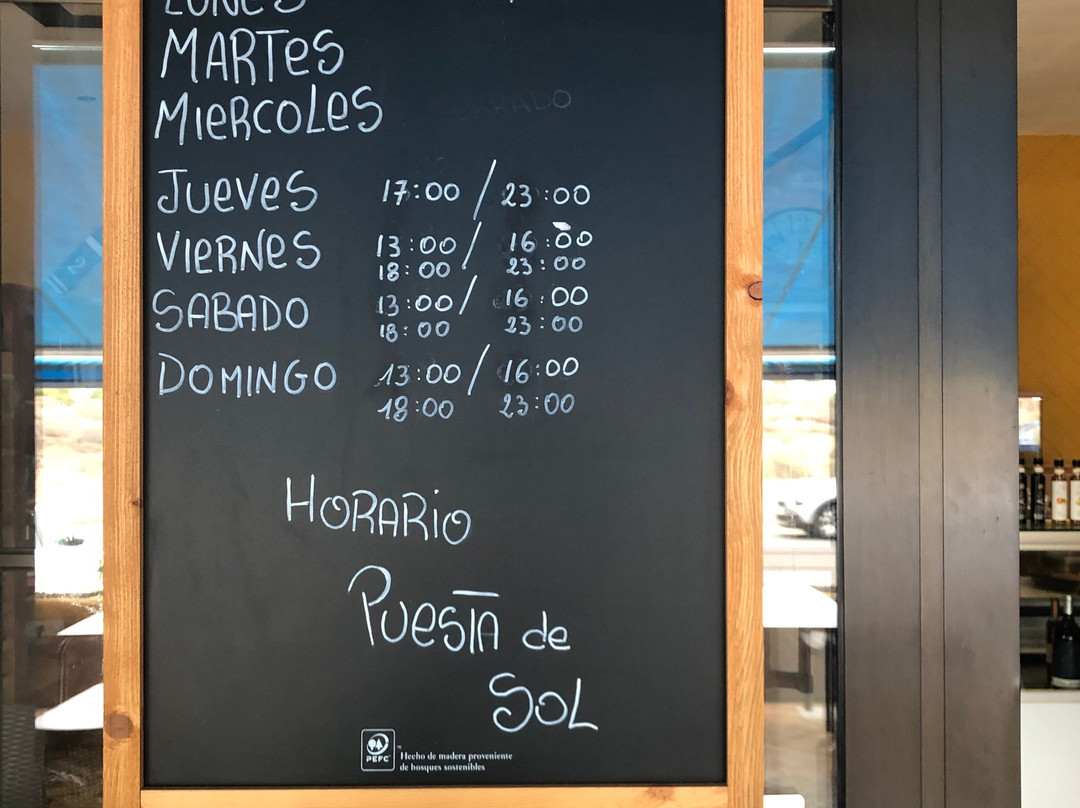 LUNES
MARTES
MIERCOLES
JUEVES 17:00 / 23:00
VIERNES 13:00 / 16:00
18:00 23:00
SABADO 13:00 / 16:00
18:00 23:00
DOMINGO 13:00 / 16:00
18:00 23:00
HORARIO
PUESTA de
SOL
PEFC™
Hecho de madera proveniente
de bosques sostenibles